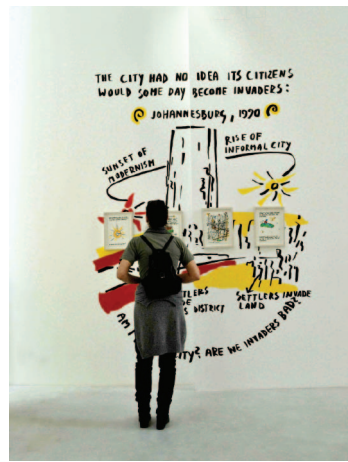 THE CITY HAD NO IDEA ITS CITIZENS
WOULD SOME DAY BECOME INVADERS:
JOHANNESBURG, 1990
SUNSET OF
MODERNISM
RISE OF
INFORMAL CITY
TLERS
DE
S DISTRICT
SETTLERS INVADE
LAND
AM I
ITY? ARE WE INVADERS BAD?